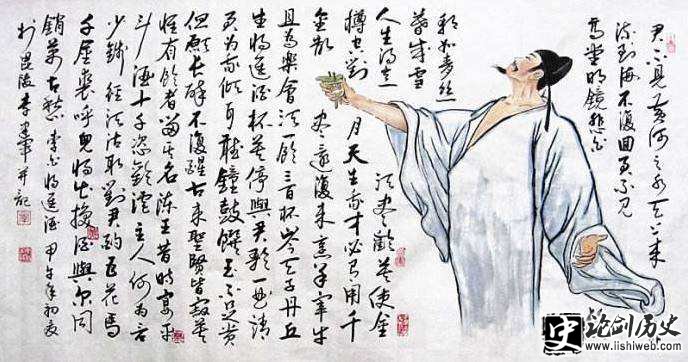 君不見黃河之水天上来
流到海不復回君不見
高堂明鏡悲白
朝如青丝
暮成雪
人生得意須盡歡莫使金
樽空對月天生我才必有用千
金散盡還復来烹羊宰牛
且為樂會須一飲三百杯岑夫子丹丘
生將進酒杯莫停與君歌一曲請
君為我傾耳聽鐘鼓饌玉不足貴
但願長醉不復醒古来聖賢皆寂寞
惟有飲者留其名陳王昔時宴平
斗酒十千恣歡謔主人何為言
少錢徑須沽取對君酌五花馬
千金裘呼兒將出換酒與爾同
銷萬古愁李白將進酒甲午年初夏
於毘陵李
并記
史
论剑历史
www.lishiweb.com